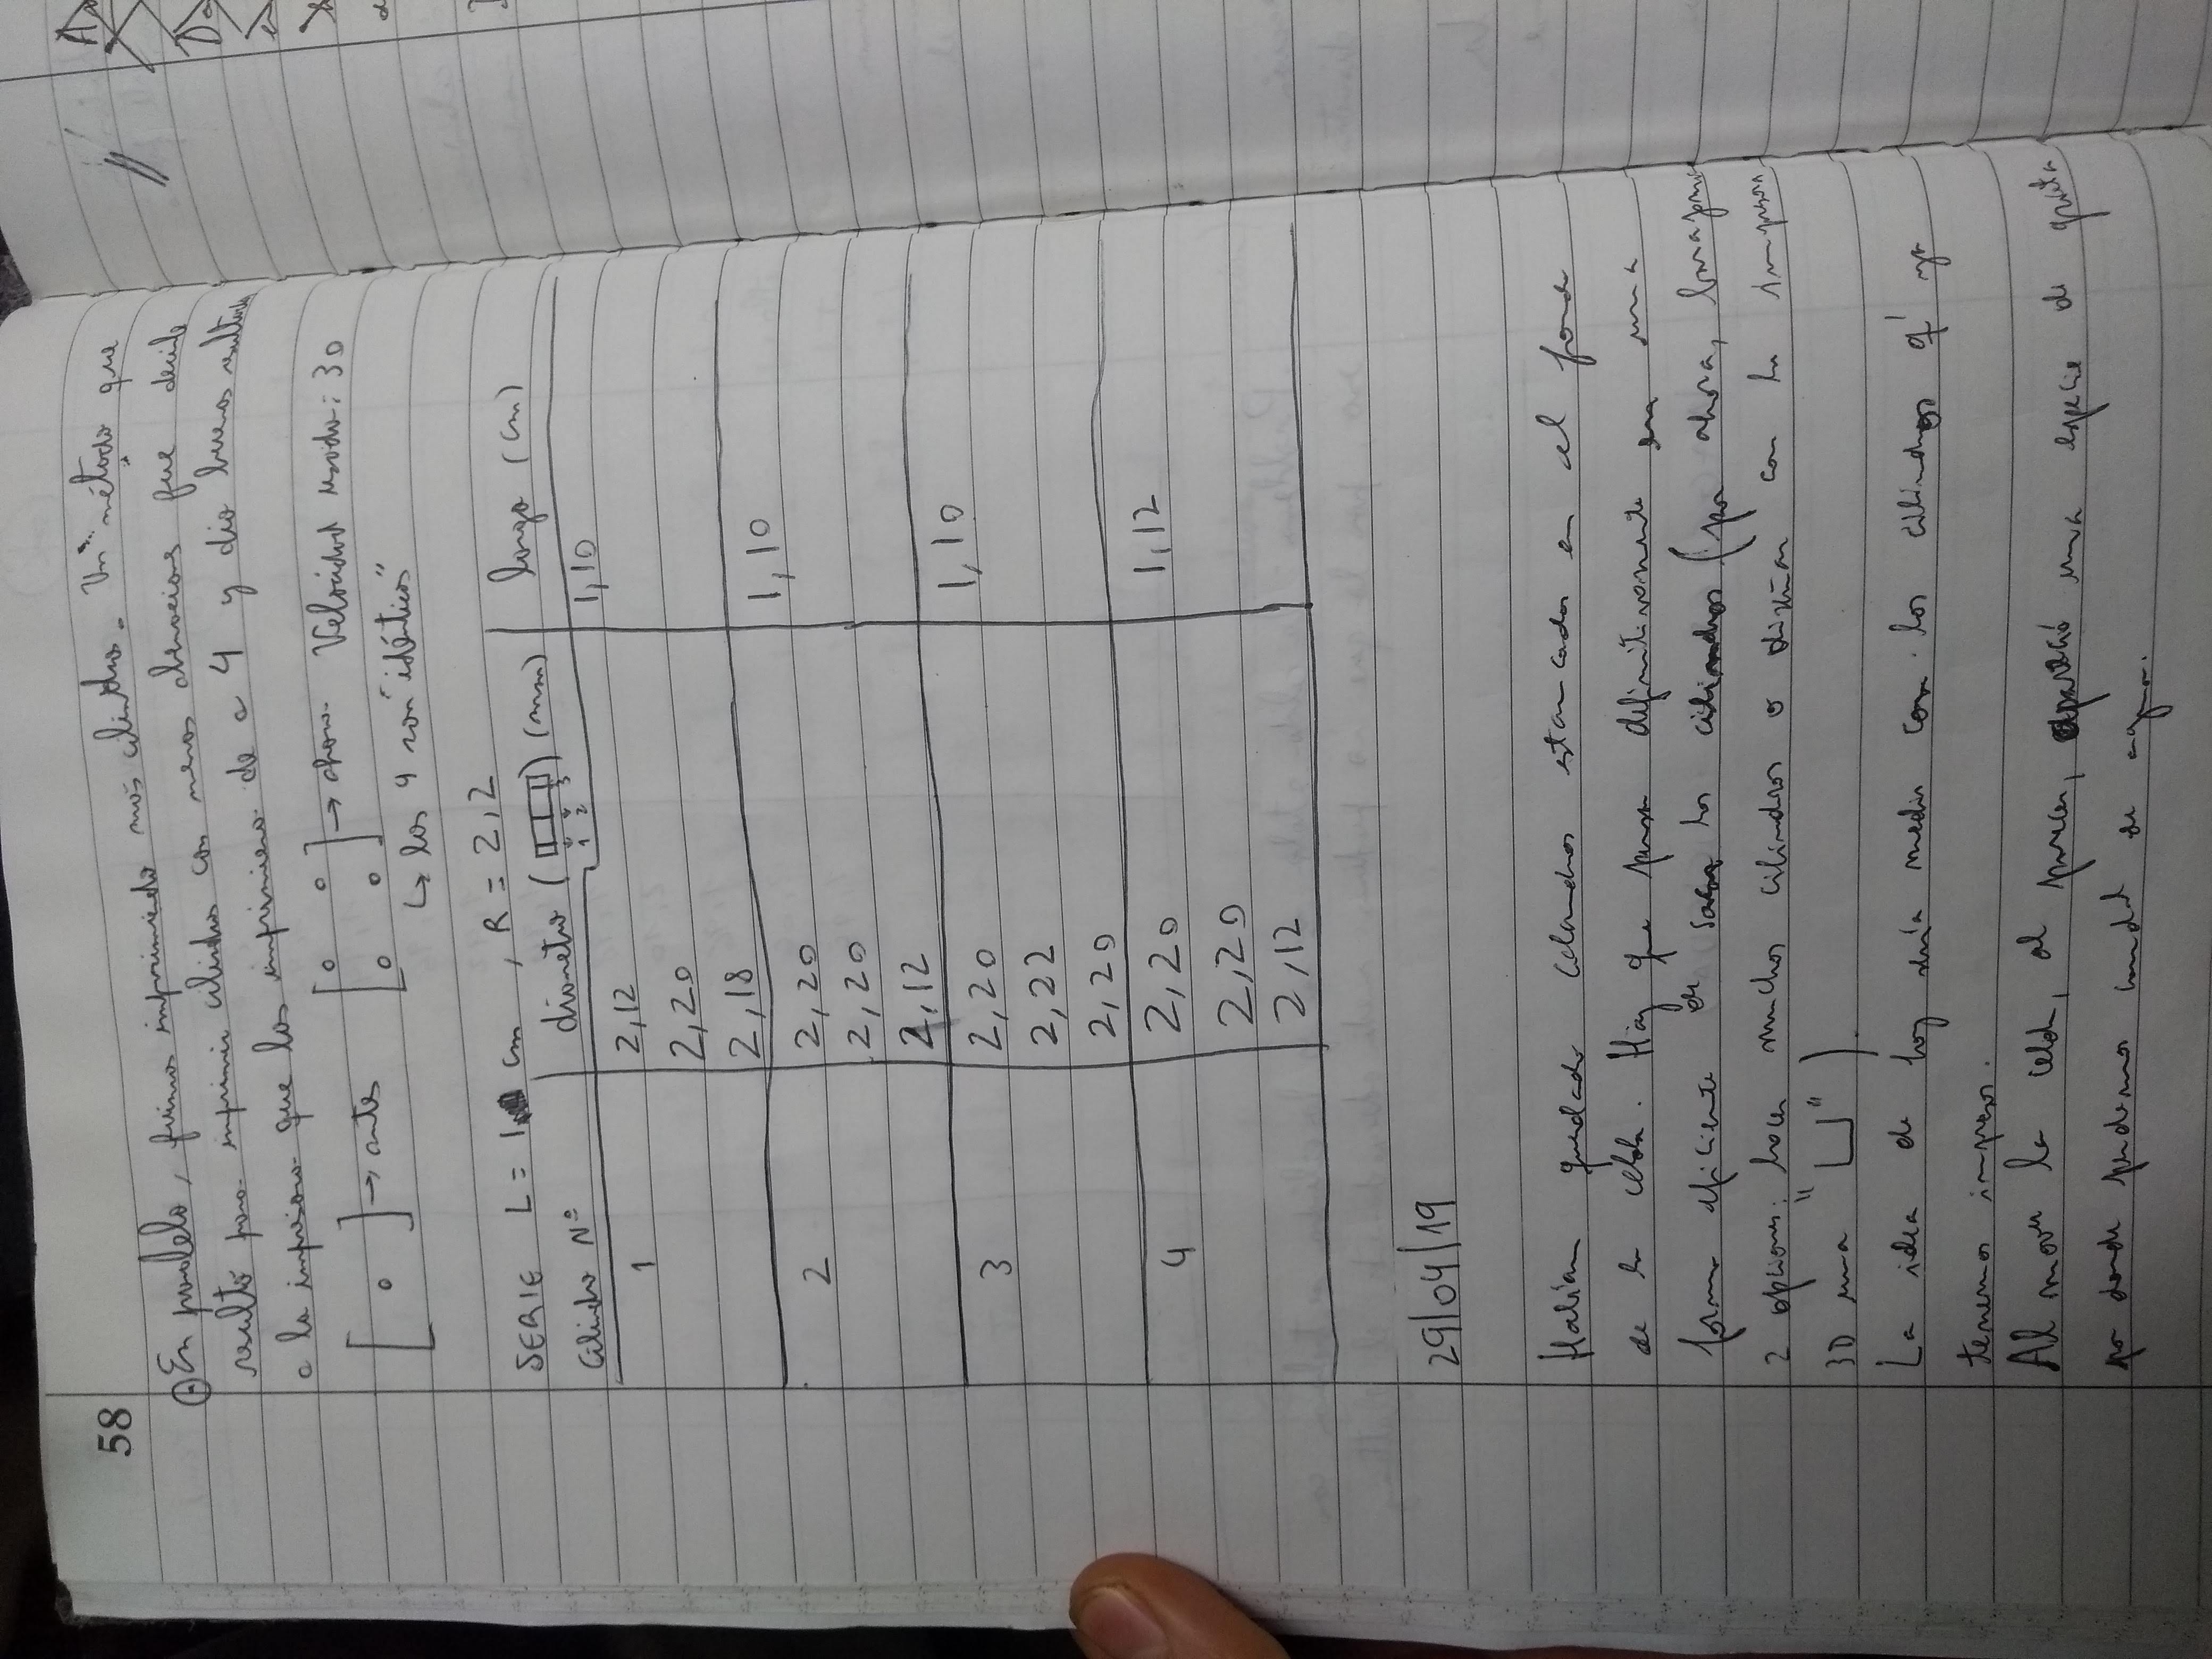 58
En paralelo, fuimos imprimiendo más cilindros. Un método que
resultó para imprimir cilindros con menos desvíos fue decirle
a la impresora que los imprimiera de a 4 y dio buenos resultados
[ ° ] → antes [ ° ° ° ° ] → ahora. Velocidad usada: 30
↳ los 4 son "idénticos"
SERIE L = 1 cm , R = 2,2
Cilindro N° diámetro ( 1 2 3 ) (mm) largo (cm)
1 2,12 1,10
2,20
2,18
2 2,20 1,10
2,20
2,12
3 2,20 1,10
2,22
2,20
4 2,20 1,12
2,20
2,12
29/04/19
Habían quedado cilindros estancados en el fondo
de la celda. Hay que pensar definitivamente en una
forma eficiente de sacar los cilindros (por ahora,
2 opciones: hacer muchos cilindros o diseñar con la impresora
3D una "⊔")
La idea de hoy día medir con los cilindros q' ya
tenemos impresos.
Al mover la celda, al parecer, apareció una especie de grieta
por donde perdemos cantidad de agua.